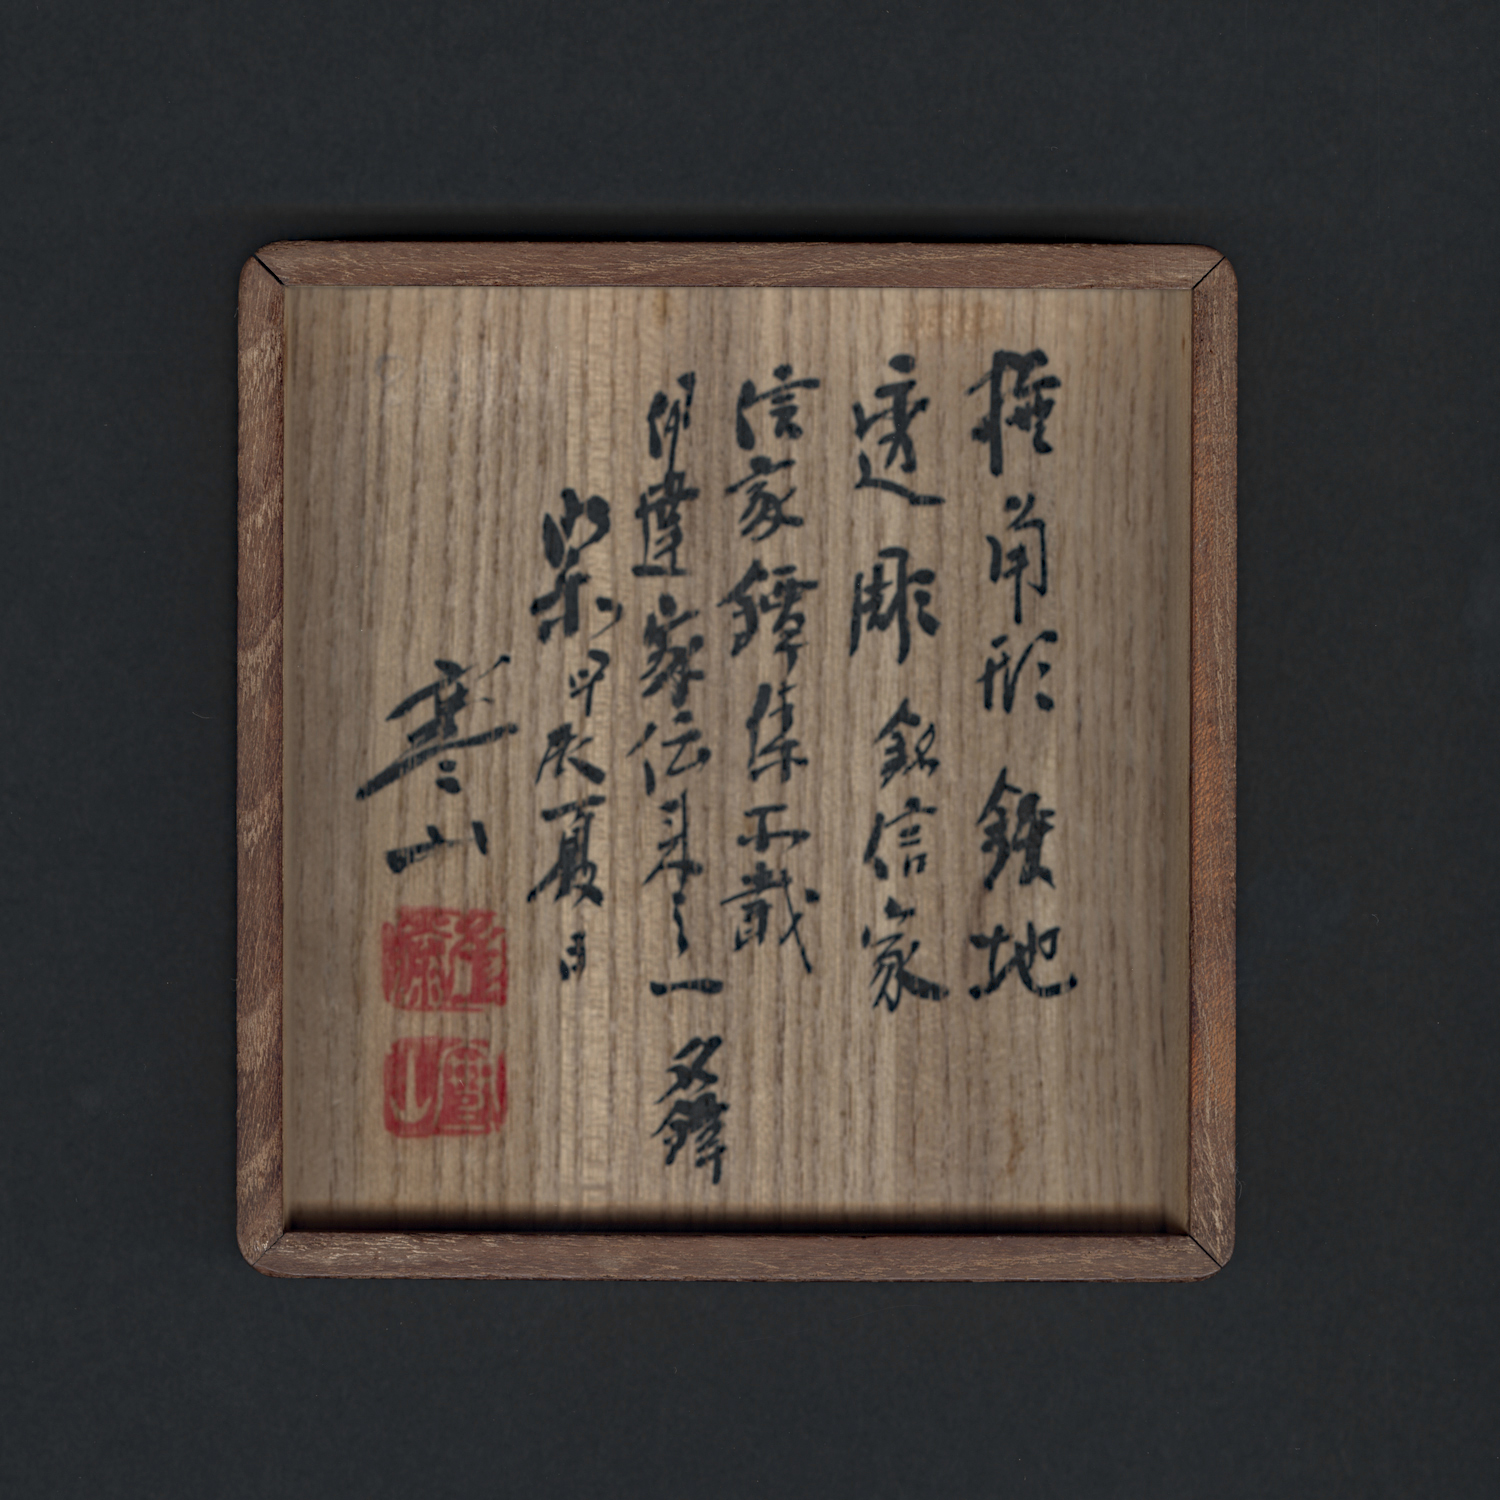 撫角形 鐵地
透彫 銘信家
信家鐔集所載
伊達家伝来之一名鐔
甲辰夏日
寒山
寒山